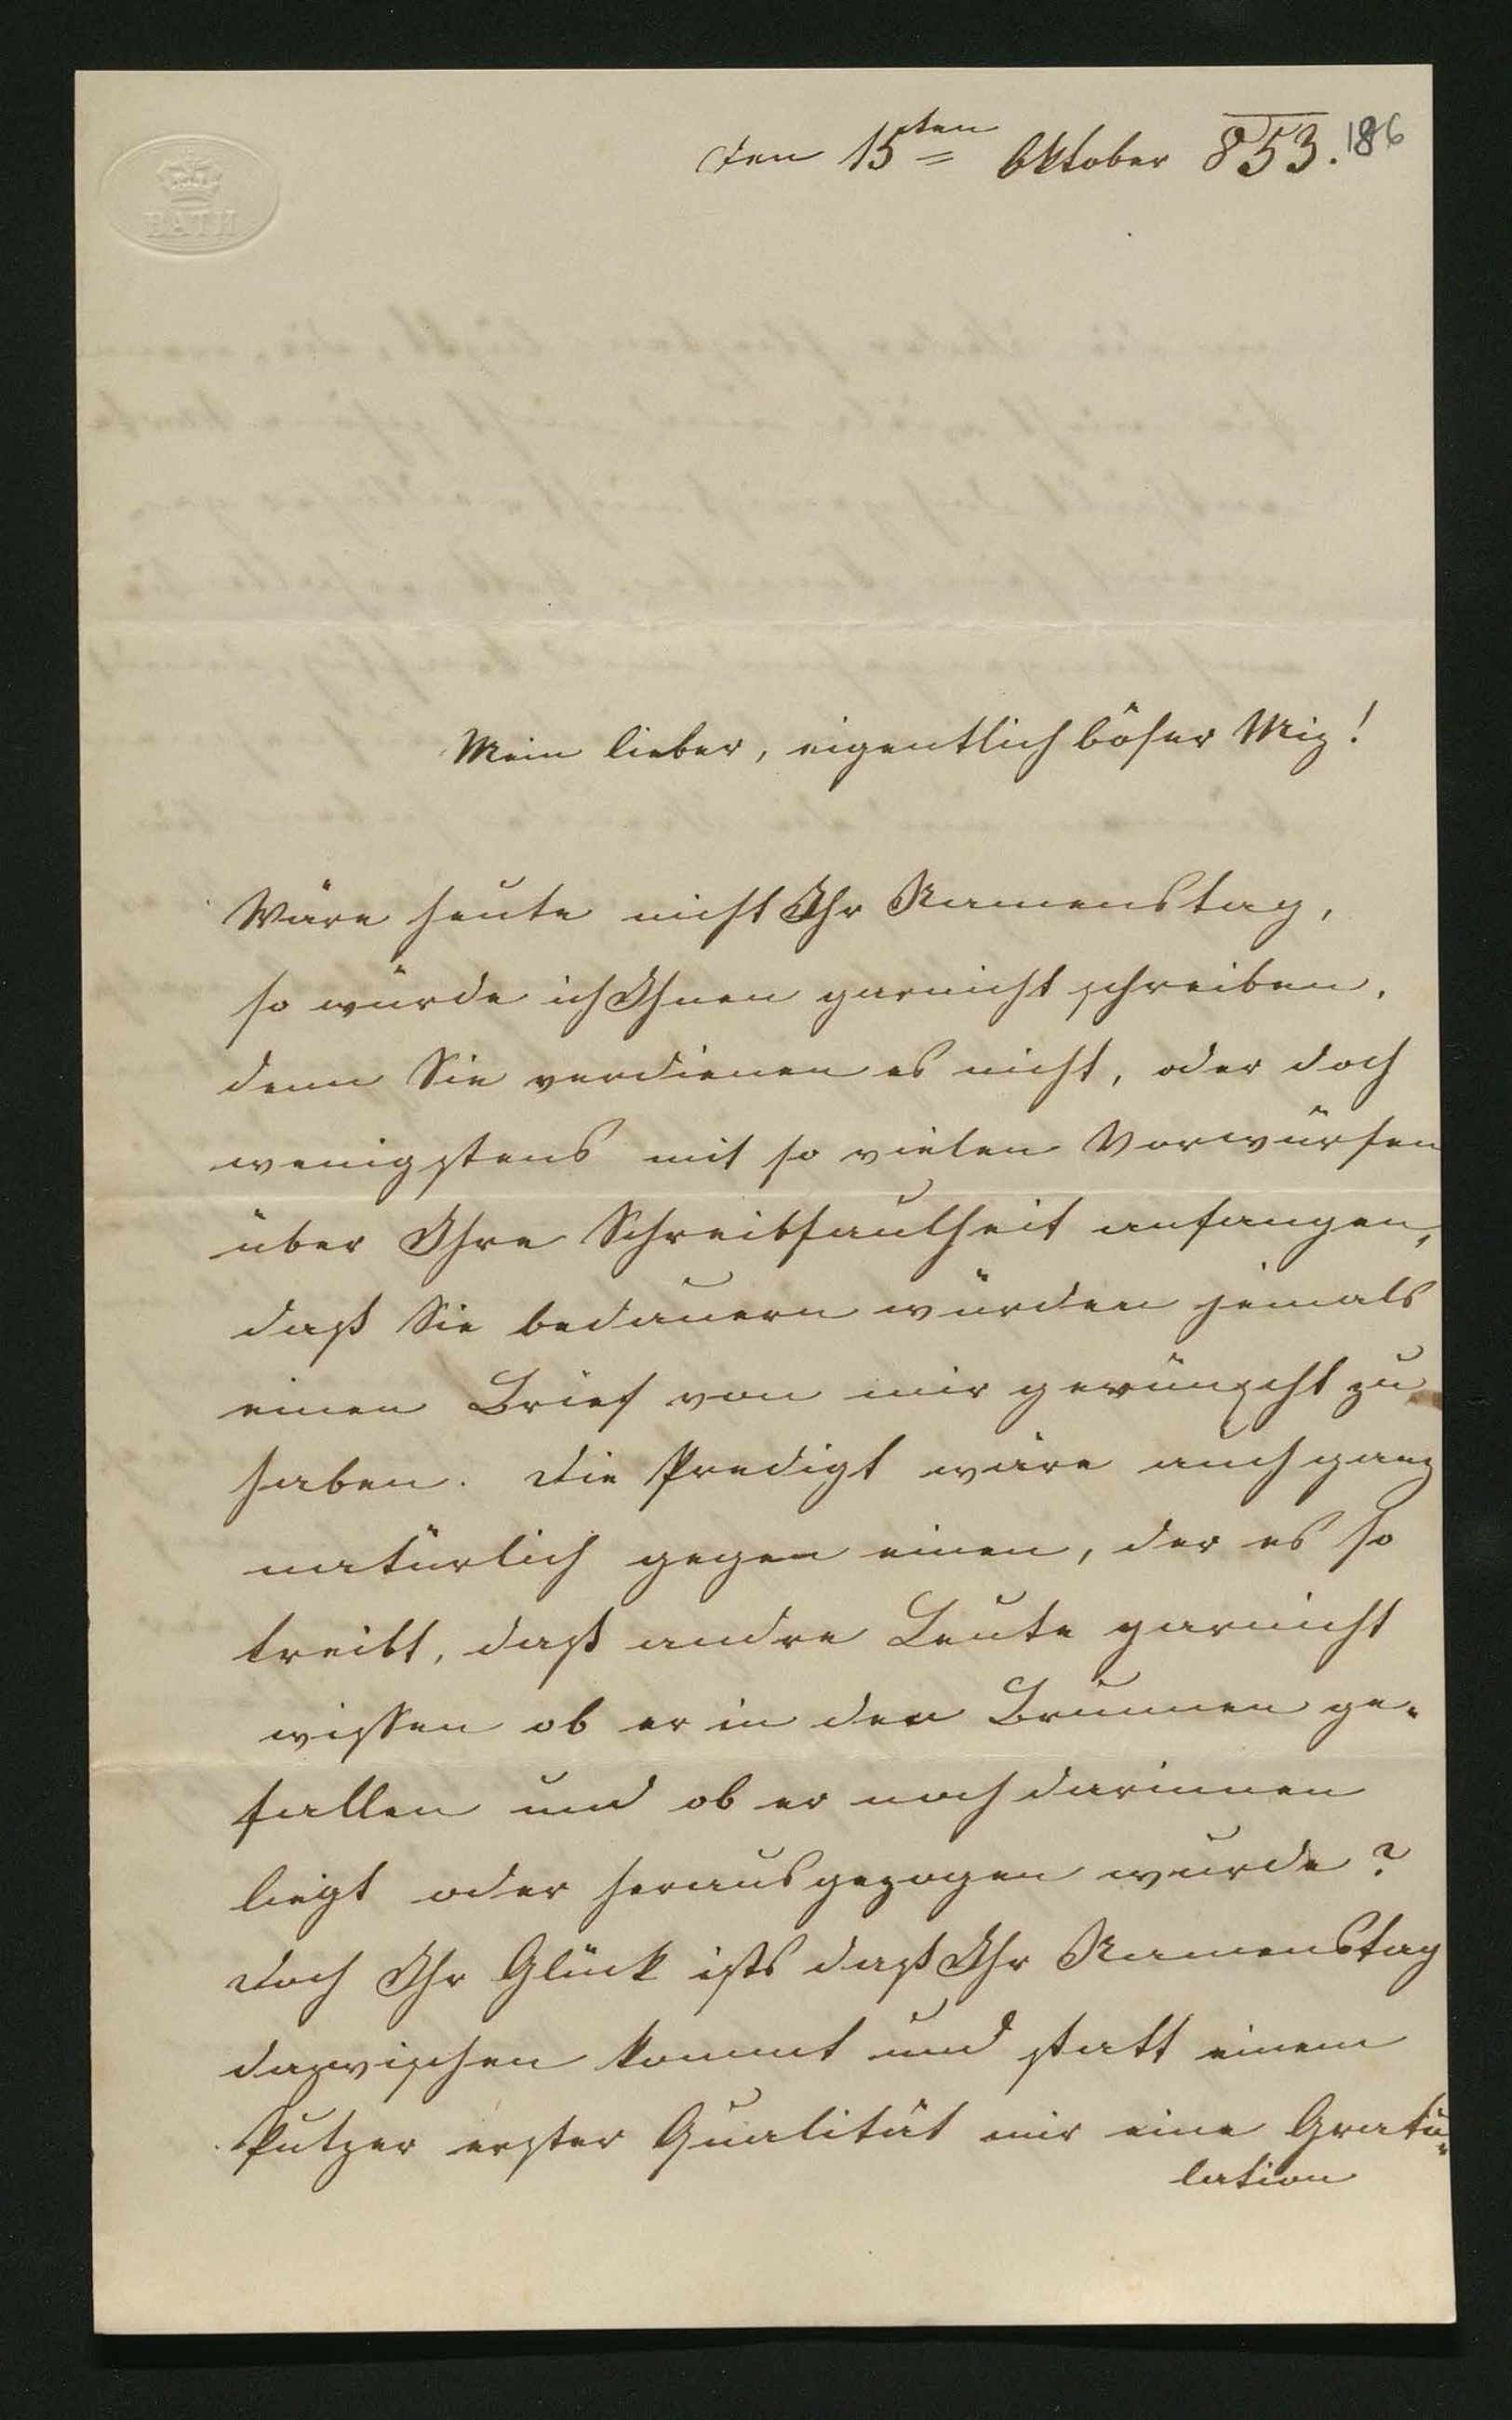 BATH
den 15ten Oktober 853. 186
Mein lieber, eigentlich böser Miz!
Wäre heute nicht Ihr Namenstag,
so würde ich Ihnen garnicht schreiben,
denn Sie verdienen es nicht, oder doch
wenigstens mit so vielen Vorwürfen
über Ihre Schreibfaulheit anfangen,
daß Sie bedauern würden jemals
einen Brief von mir gewünscht zu
haben. Die Predigt wäre auch ganz
natürlich gegen einen, der es so
treibt, daß andre Leute garnicht
wissen ob er in den Brunnen ge-
fallen und ob er noch darinnen
liegt oder herausgezogen wurde?
Doch Ihr Glück ists daß Ihr Namenstag
dazwischen kommt und statt einem
Putzer erster Qualität mir eine Gratu-
lation